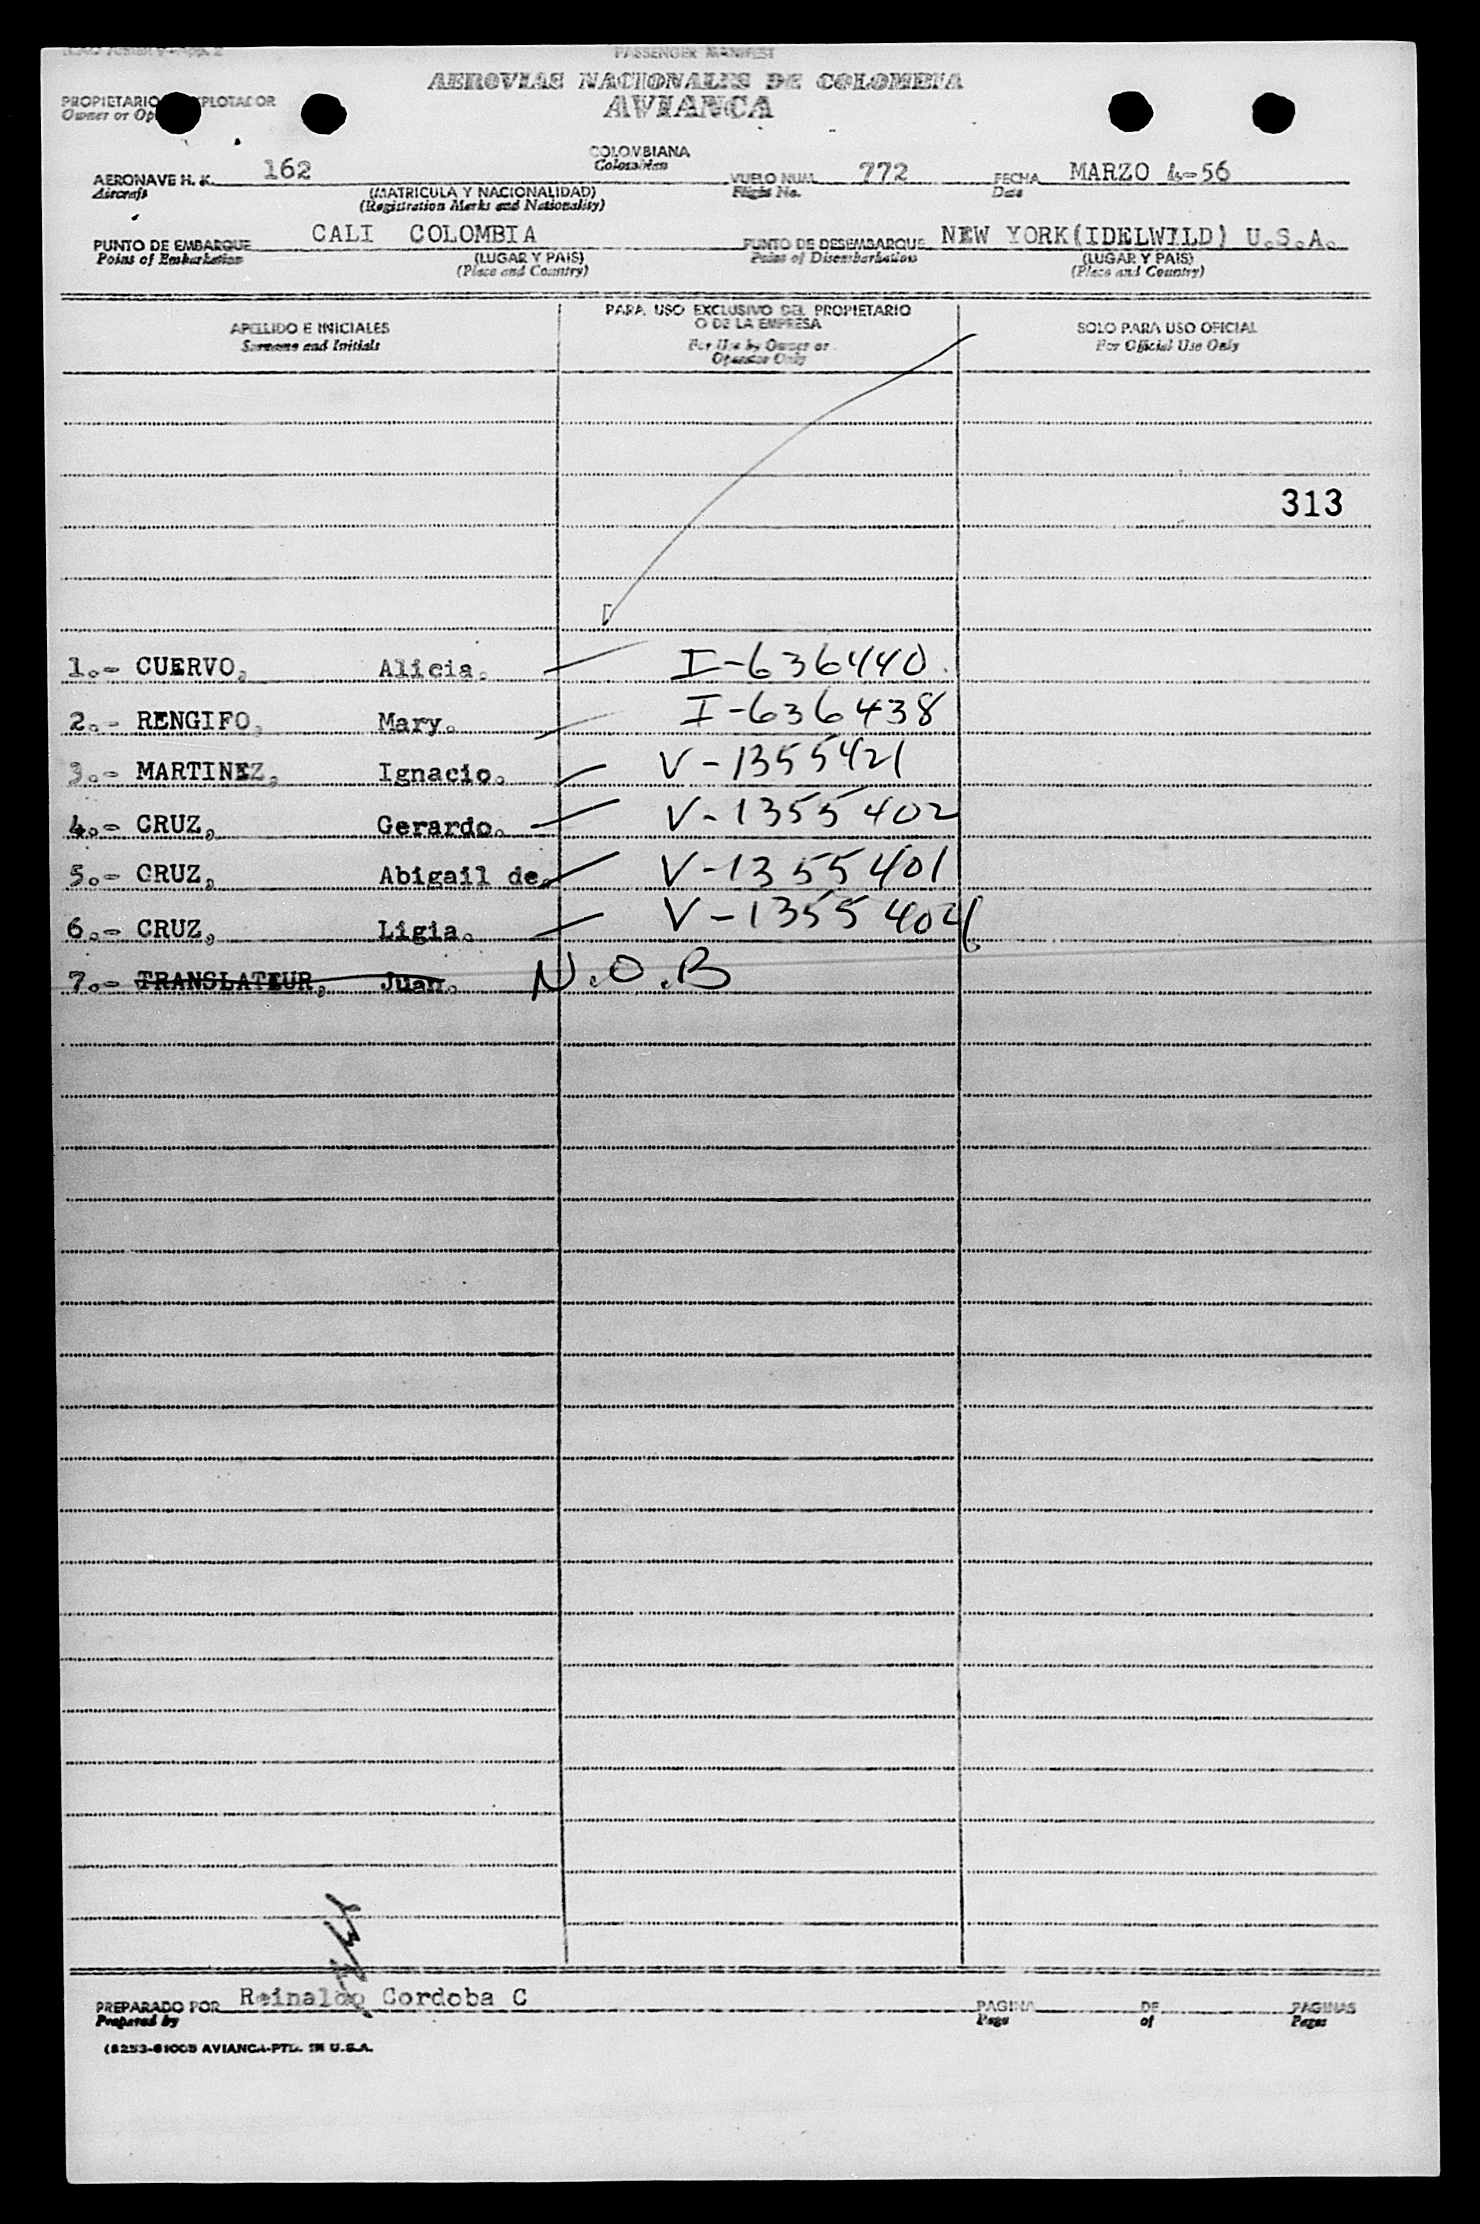 PASSENGER MANIFEST
AEROVIAS NACIONALES DE COLOMBIA
AVIANCA
PROPIETARIO EXPLOTADOR
Owner or Op
COLOMBIANA
Colombian
AERONAVE H. K. 162 VUELO NUM. 772 FECHA MARZO 4-56
Aircraft (MATRICULA Y NACIONALIDAD) Flight No. Date
(Registration Marks and Nationality)
PUNTO DE EMBARQUE CALI COLOMBIA PUNTO DE DESEMBARQUE NEW YORK(IDELWILD) U.S.A.
Point of Embarkation (LUGAR Y PAIS) Point of Disembarkation (LUGAR Y PAIS)
(Place and Country) (Place and Country)
APELLIDO E INICIALES
Surname and Initials
PARA USO EXCLUSIVO DEL PROPIETARIO
O DE LA EMPRESA
For Use by Owner or
Operator Only
SOLO PARA USO OFICIAL
For Official Use Only
313
1.- CUERVO, Alicia. I-636440
2.- RENGIFO, Mary. I-636438
3.- MARTINEZ, Ignacio. V-1355421
4.- CRUZ, Gerardo. V-1355402
5.- CRUZ, Abigail de. V-1355401
6.- CRUZ, Ligia. V-1355404
7.- TRANSLATEUR, Juan. N.O.B
PREPARADO POR Reinaldo Cordoba C PAGINA DE PAGINAS
Prepared by Page of Pages
(8253-61005 AVIANCA-PTD. IN U.S.A.